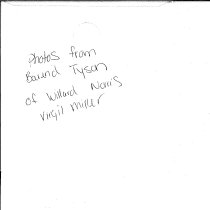 Photos from
Baund Tyson
of Willard Norris
Virgil Miller